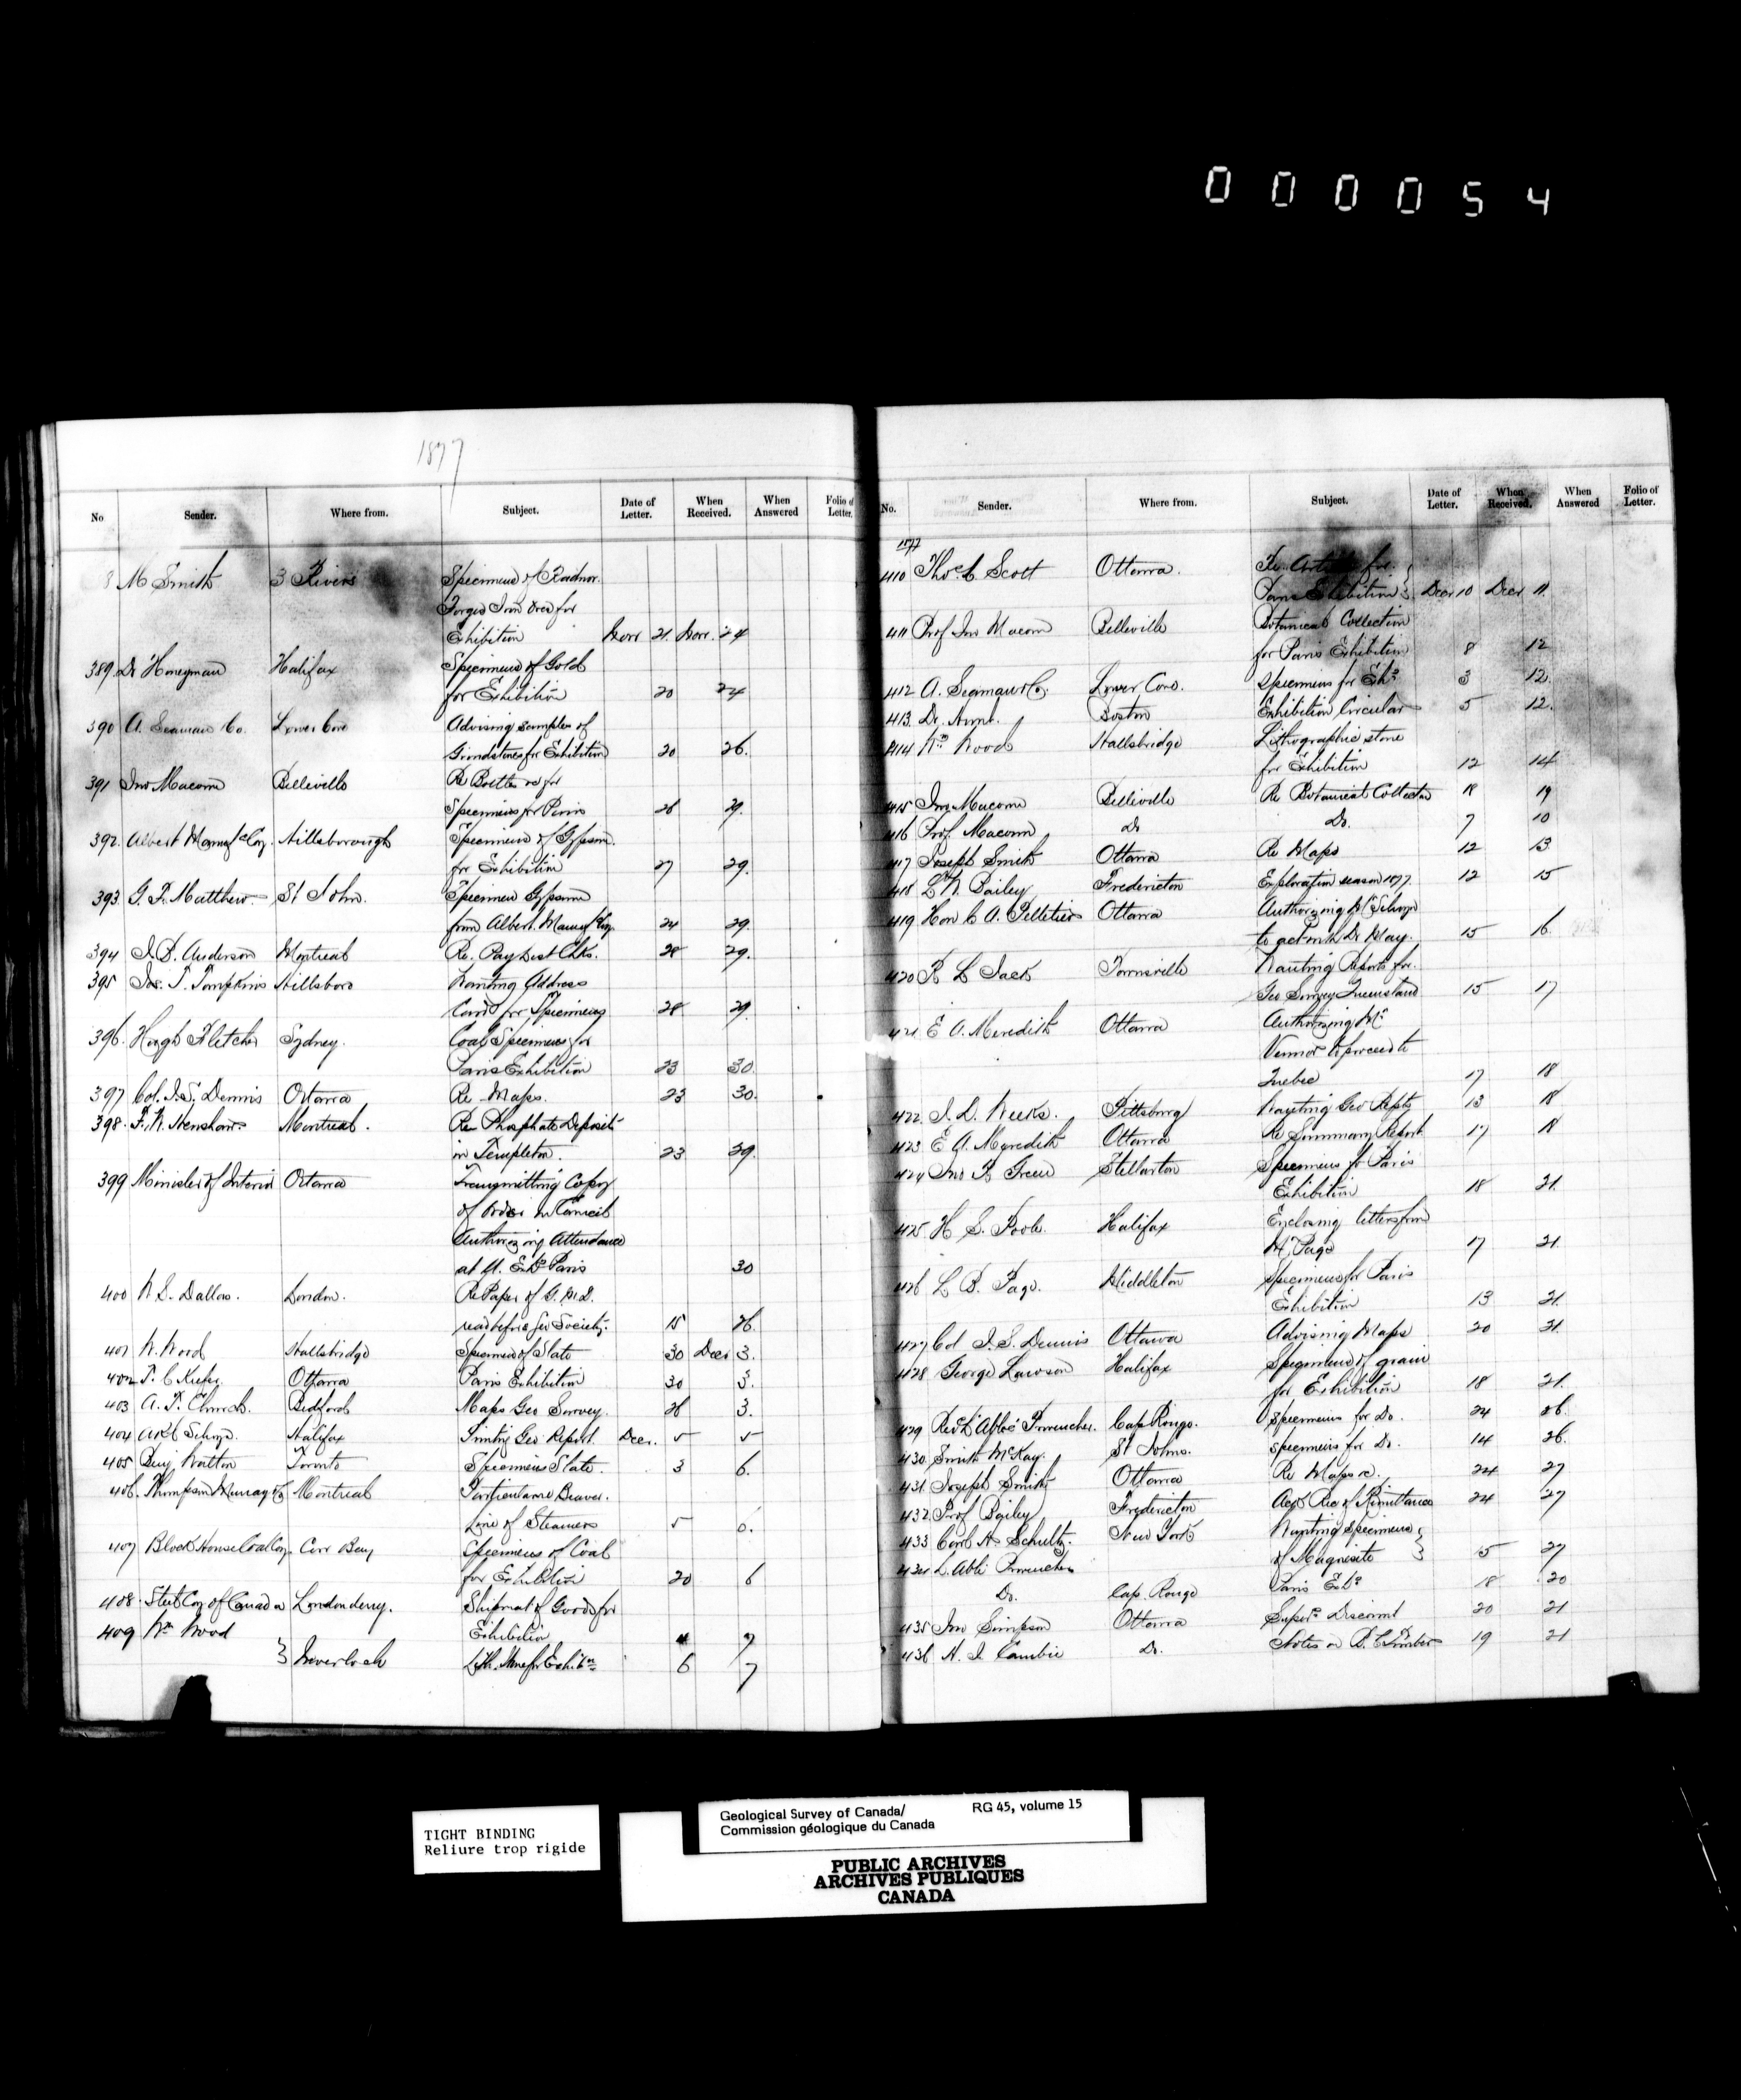 000054
1877
No Sender. Where from. Subject. Date of Letter. When Received. When Answered Folio of Letter.
8 M Smith 3 Rivers Specimens of Radnor
Forges Iron Ores for
Exhibition Novr 21. Novr. 24
389. Dr Honeyman Halifax Specimens of Gold
for Exhibition 20 24
390 A. Seaman Co. Lower Cove Advising samples of
Grindstones for Exhibition 20 26.
391 Jno Macoun Belleville Re Bottles &c for
Specimens for Paris 26 29.
392. Albert Manufg Coy. Hillsborough Specimens of Gypsum.
for Exhibition 27 29.
393. G. F. Matthew. St John. Specimen Gypsum
from Albert Manuf Coy. 24 29.
394 J. B. Anderson Montreal Re. Pay List Chks. 28 29.
395 T. Tompkins Hillsboro Wanting Address
Cards for Specimens 28 29.
396. Hugh Fletcher Sydney. Coal Specimens for
Paris Exhibition 23 30.
397 Col. J. S. Dennis Ottawa Re Maps. 23 30.
398. F. W. Henshaw Montreal. Re Phosphate Deposit
in Templeton. 23 29.
399 Minister of Interior Ottawa Transmitting Copy
of Order in Council
Authorizing Attendance
at Paris 30
400 W. S. Dallas. London. Re Paper of G. M. D.
read before Geo Society. 15 26.
401 W. Wood Hallsbridge Specimen of Slate 30 Decr 3.
402 T. C. Keefer Ottawa Paris Exhibition 30 3.
403 A. F. Church. Bedford Maps Geo Survey. 28 3.
404 A R C Selwyn. Halifax Printing Geo Report. Decr. 5 5
405 Benj Walton Toronto Specimens Slate. 3 6.
406. Thompson Murray Co Montreal Particulars re Beaver.
Line of Steamers 5 6.
407 Block House Coal Coy. Cow Bay Specimens of Coal
for Exhibition 20 6
408. Steel Coy of Canada Londonderry. Shipment of Goods for
Exhibition 4 7
409 Wm Wood
Lith. Stone for Exhibn 6 7
No. Sender. Where from. Subject. Date of Letter. When Received. When Answered Folio of Letter.
1877
410 Thos. C Scott Ottawa. Re. Articles for
Paris Exhibition Decr 10 Decr 11.
411 Prof Jno Macoun Belleville Botanical Collection
for Paris Exhibition 8 12
412 A. Seaman & Co. Lower Cove. Specimens for Exhn 3 12.
413. Dr. Hunt. Boston Exhibition Circular 5 12.
414 Wm Wood Hallsbridge Lithographic stone
for Exhibition 12 14
415 Jno Macoun Belleville Re Botanical Collection 18 19
416 Prof. Macoun Do Do. 7 10
417 Joseph Smith Ottawa Re Maps 12 13
418 L W. Bailey Fredericton Exploration season 1877. 12 15
419 Hon C A. Pelletier Ottawa Authorizing Mr Selwyn
to act with Dr May. 15 16.
420 R L Jack Townsville Wanting Reports for.
Geo Survey Queensland 15 17
421 E A. Meredith Ottawa Authorizing Mr
Vennor to proceed to
Quebec 17 18
422 J. D. Weeks. Pittsburg Wanting Geo Repts 13 18
423 E A. Meredith Ottawa Re Summary Report 17 18
424 Jno R Green Stellarton Specimens for Paris
Exhibition 18 21.
425 H S. Poole. Halifax Enclosing letters from
Mr Page 17 21.
426 L B. Page. Middleton Specimens for Paris
Exhibition 13 21.
427 Col J. S. Dennis Ottawa Advising Maps 20 21.
428 George Lawson Halifax Specimens of grain
for Exhibition 18 21.
429 Revd L'Abbé Provencher. Cap Rouge. Specimens for Do. 24 26.
430. Smith McKay. St Johns. specimens for Do. 14 26.
431 Joseph Smith Ottawa Re Maps &c. 24 27
432 Prof Bailey Fredericton Ackg Rec of Remittance 24 27
433 Carl H. Schultz. New York Wanting specimens
of Magnesite 5 27
434 L. Abbé Provencher
Do. Cap. Rouge Paris Exhn 18 20
435 Jno Simpson Ottawa Discount 20 21
436 H. J. Cambie Do. Notes on B. C Timber 19 21
TIGHT BINDING
Reliure trop rigide
Geological Survey of Canada/ RG 45, volume 15
Commission géologique du Canada
PUBLIC ARCHIVES
ARCHIVES PUBLIQUES
CANADA